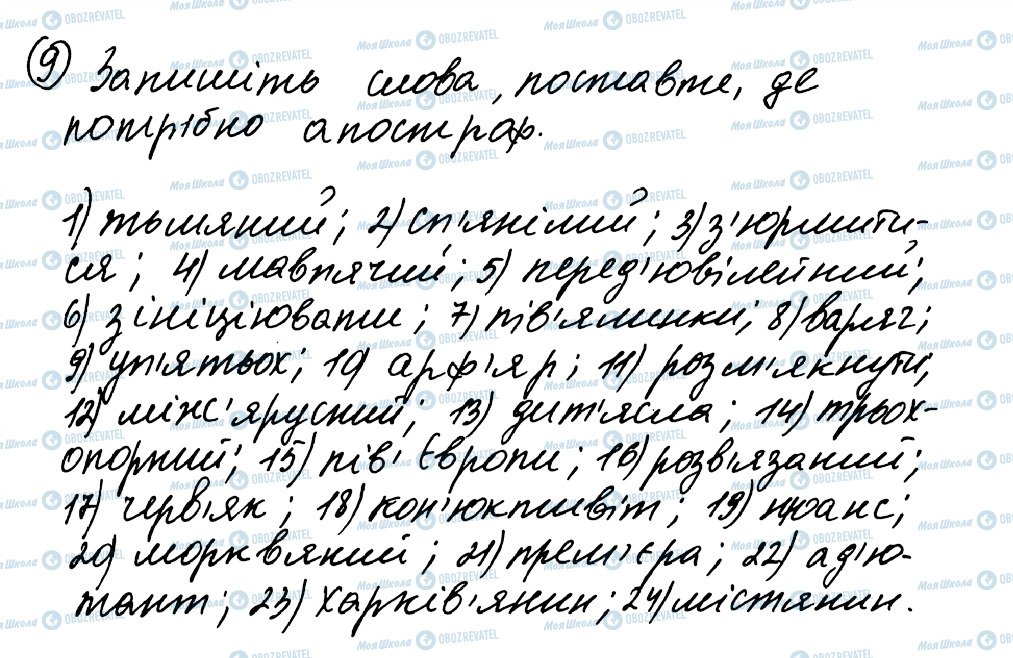 9 Запишіть слова, поставте, де
потрібно апостраф.
1) тьмяний; 2) сп'янілий; 3) з'юрмити-
ся; 4) мавпячий; 5) перед'ювілейний;
6) зініціювати; 7) пів'ялинки; 8) варяг;
9) уп'ятьох; 10) арф'яр; 11) розм'якнути;
12) між'ярусний; 13) дит'ясла; 14) трьох-
опорний; 15) пів'Європи; 16) розв'язаний;
17) черв'як; 18) кон'юктивіт; 19) нюанс;
20) морквяний; 21) прем'єра; 22) ад'ю-
тант; 23) Харків'янин; 24) містянин.